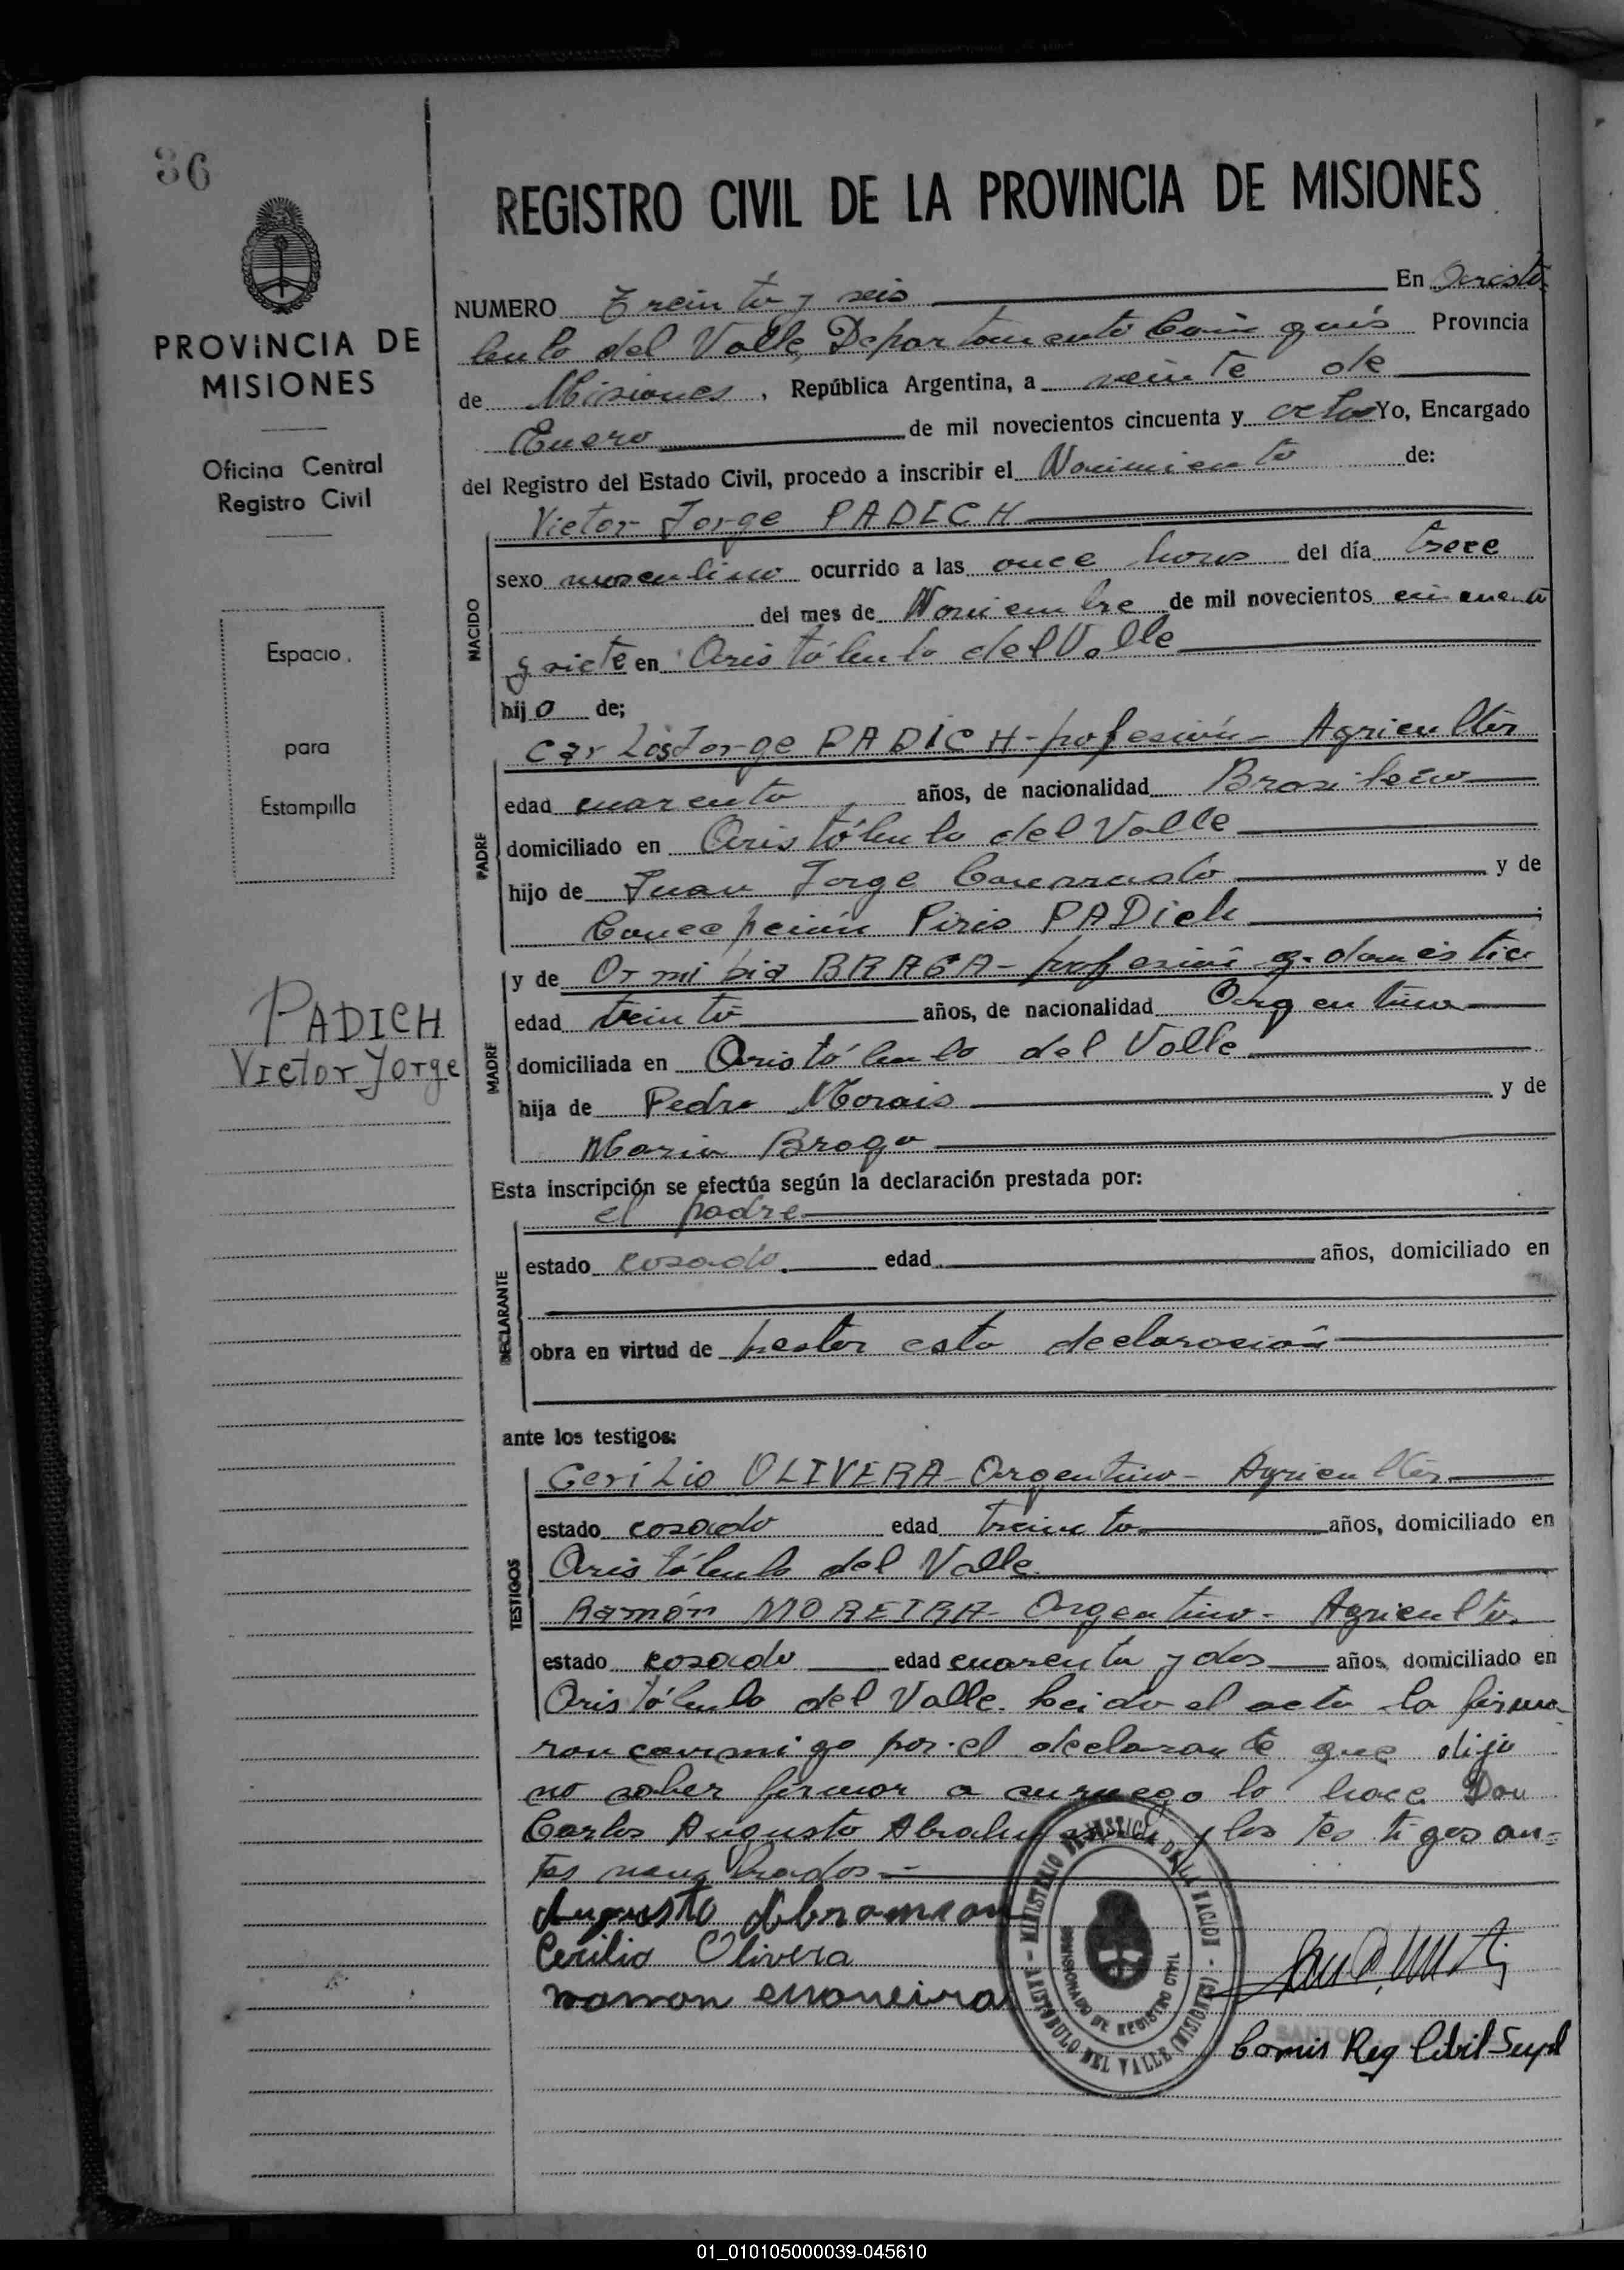 36
PROVINCIA DE
MISIONES
Oficina Central
Registro Civil
Espacio
para
Estampilla
PADICH
Victor Jorge
REGISTRO CIVIL DE LA PROVINCIA DE MISIONES
NUMERO Treinta y seis En Aristó-
bulo del Valle, Departamento Cainguás Provincia
de Misiones, República Argentina, a veinte de
Enero de mil novecientos cincuenta y ocho Yo, Encargado
del Registro del Estado Civil, procedo a inscribir el Nacimiento de:
NACIDO
Victor Jorge PADICH
sexo masculino ocurrido a las once horas del día trece
del mes de Noviembre de mil novecientos cincuenta
y siete en Aristóbulo del Valle
hijo de;
PADRE
Carlos Jorge PADICH - profesión - Agricultor
edad cuarenta años, de nacionalidad Brasileño
domiciliado en Aristóbulo del Valle
hijo de Juan Jorge y de
Concepción Piris PADich
MADRE
y de Ormibia BRAGA - profesión q. domestica
edad treinta años, de nacionalidad Argentina
domiciliada en Aristóbulo del Valle
hija de Pedro Morais y de
Maria Braga
Esta inscripción se efectúa según la declaración prestada por:
DECLARANTE
el padre
estado casado edad años, domiciliado en
obra en virtud de prestar esta declaración
ante los testigos:
TESTIGOS
Cerilio OLIVERA - Argentino - Agricultor
estado casado edad treinta años, domiciliado en
Aristóbulo del Valle
Ramón MOREIRA - Argentino - Agricultor
estado casado edad cuarenta y dos años, domiciliado en
Aristóbulo del Valle. Leido el acta la firma-
ron conmigo por el declarante que dijo
no saber firmar a su ruego lo hace Don
Carlos Augusto y los testigos an-
tes nombrados
Augusto Abramson
Cerilio Olivera
MINISTERIO DE JUSTICIA DE LA NACION - ARISTOBULO DEL VALLE (MISIONES)
COMISIONADO DE REGISTRO CIVIL
Comis Reg Cibil Supl
01_010105000039-045610